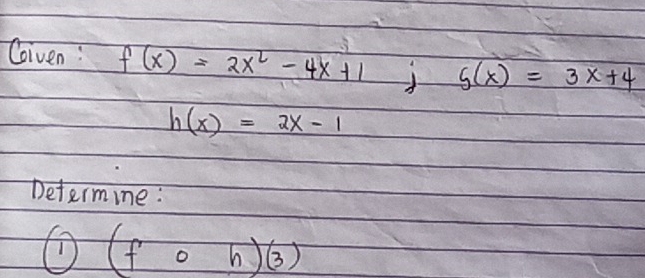 Given : f(x) = 2x² - 4x + 1 ; g(x) = 3x + 4
h(x) = 2x - 1
Determine :
① (f o h)(3)